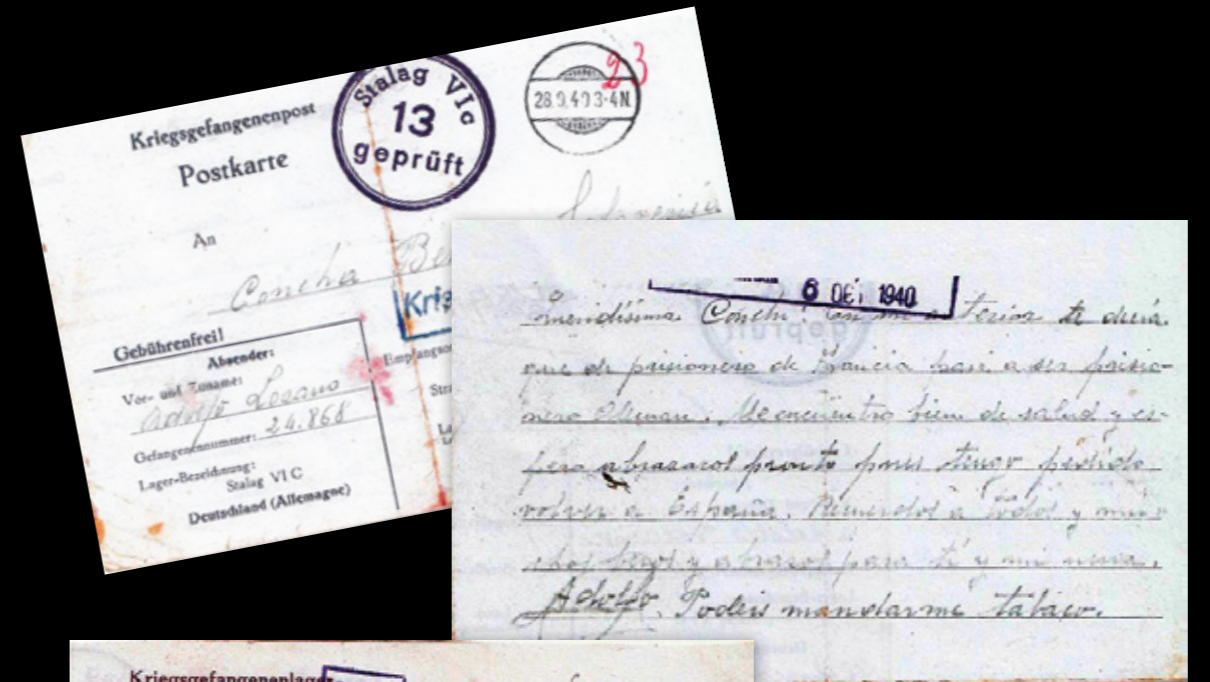 Kriegsgefangenenpost
Postkarte
Stalag VIc
13
geprüft
28.9.40 3-4N
23
An
Concha Be
Krie
Gebührenfrei!
Absender:
Vor- und Zuname:
Adolfo Lozano
Gefangenennummer: 24.868
Lager-Bezeichnung:
Stalag VI C
Deutschland (Allemagne)
Empfangsor
Stra
6 OCT 1940
Conchi: te diría
que de prisionero de Francia pasé a ser prisio-
nero Aleman. Me encuentro bien de salud y es-
pero abrazaros pronto pues tengo pedido
volver a España. Recuerdos a todos y mu-
chos besos y abrazos para ti y mi nena.
Adolfo. Podeis mandarme tabaco.
Kriegsgefangenenlager